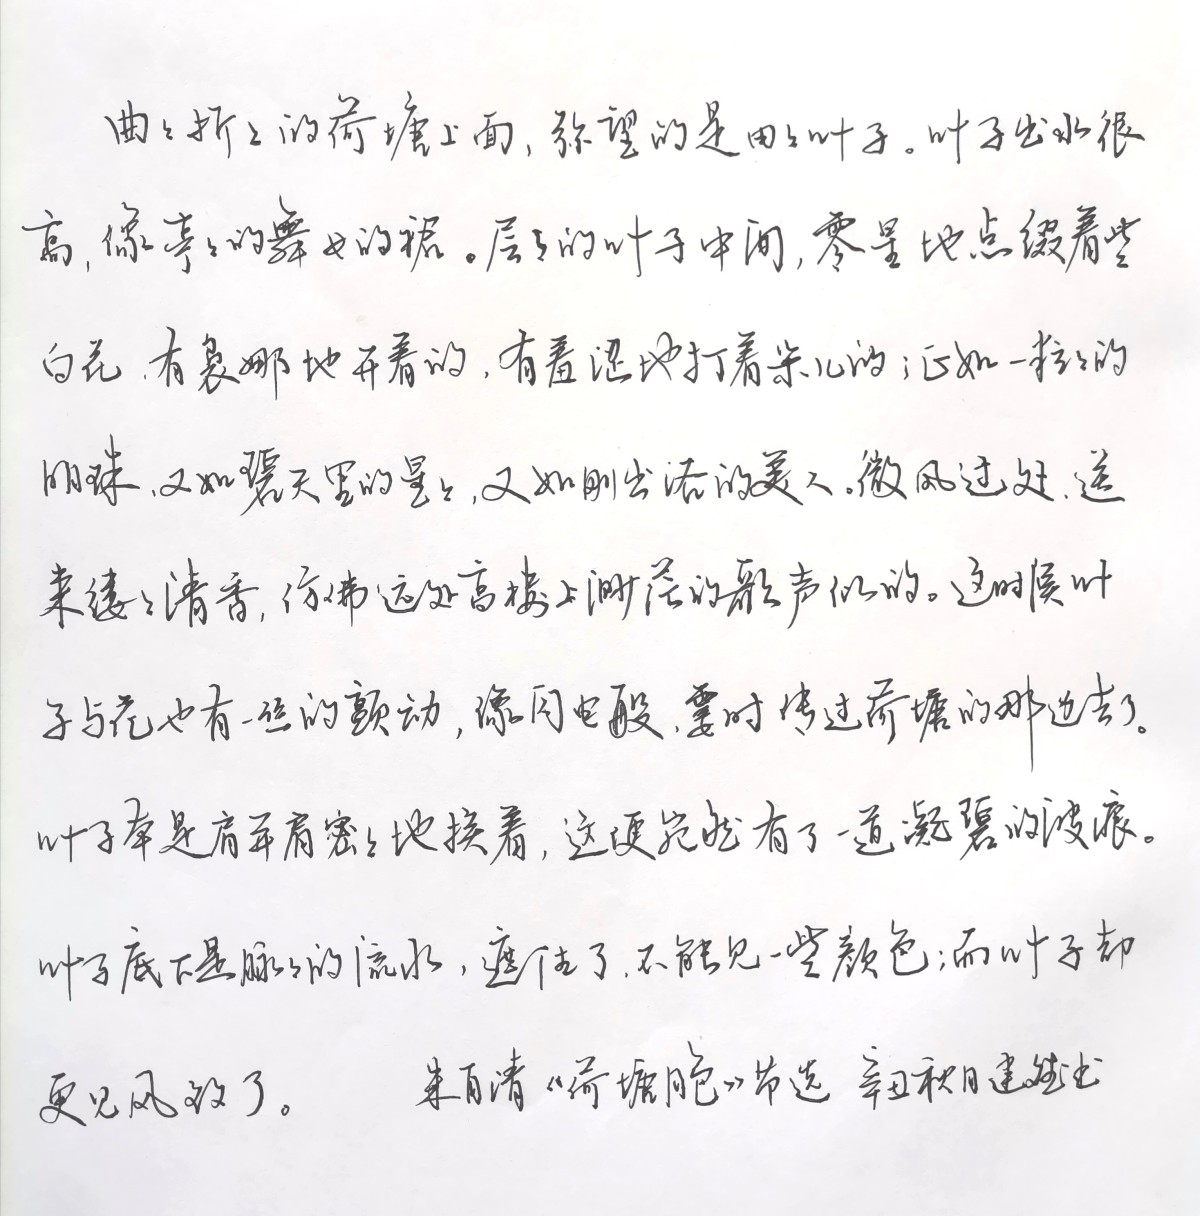 曲曲折折的荷塘上面，弥望的是田田叶子。叶子出水很
高，像亭亭的舞女的裙。层层的叶子中间，零星地点缀着些
白花，有袅娜地开着的，有羞涩地打着朵儿的；正如一粒粒的
明珠，又如碧天里的星星，又如刚出浴的美人。微风过处，送
来缕缕清香，仿佛远处高楼上渺茫的歌声似的。这时候叶
子与花也有一丝的颤动，像闪电般，霎时传过荷塘的那边去了。
叶子本是肩并肩密密地挨着，这便宛然有了一道凝碧的波痕。
叶子底下是脉脉的流水，遮住了，不能见一些颜色；而叶子却
更见风致了。 朱自清《荷塘月色》节选 辛丑秋月建雄书